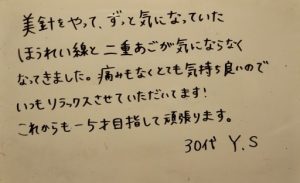 美針をやって、ずっと気になっていた
ほうれい線と二重あごが気にならなく
なってきました。痛みもなくとても気持ち良いので
いつもリラックスさせていただいてます!
これからも−5才目指して頑張ります。
30代 Y.S